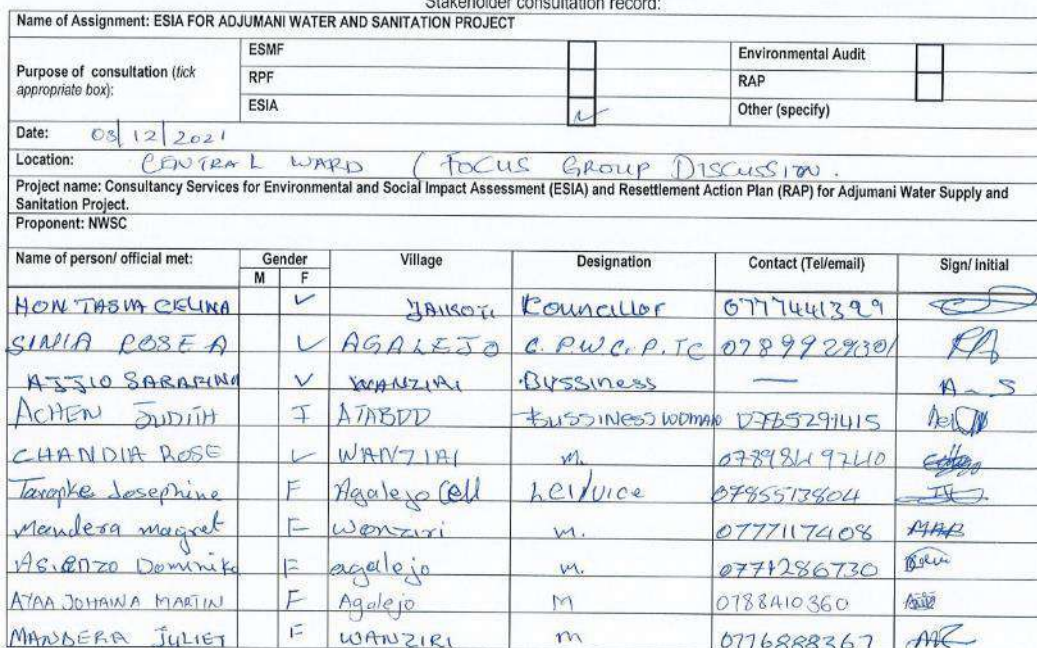 Stakeholder consultation record:
Name of Assignment: ESIA FOR ADJUMANI WATER AND SANITATION PROJECT
Purpose of consultation (tick appropriate box):
ESMF Environmental Audit
RPF RAP
ESIA ✓ Other (specify)
Date: 03/12/2021
Location: CENTRAL WARD ( FOCUS GROUP DISCUSSION.
Project name: Consultancy Services for Environmental and Social Impact Assessment (ESIA) and Resettlement Action Plan (RAP) for Adjumani Water Supply and
Sanitation Project.
Proponent: NWSC
Name of person/ official met: Gender Village Designation Contact (Tel/email) Sign/ initial
M F
HON TASIA CELINA ✓ Councillor 0777441399
SINIA ROSE A ✓ AGALEJO C.P.W.C.P.TC 0789929301 RA
AJJIO SARAFINA ✓ WANZIRI Bussiness — A-S
ACHEN JUDITH F BUSSINESS WOMAN 0785291415
CHANDIA ROSE ✓ WANZIRI M.
Josephine F Agalejo Cell 0785513804
Mandera magret F Wonziri M. 0777117408
Dominika F agalejo M. 0774286730
AYAA JOHAINA MARTIN F Agalejo M 0788410360
MANDERA JULIET F WANZIRI M 0776888367